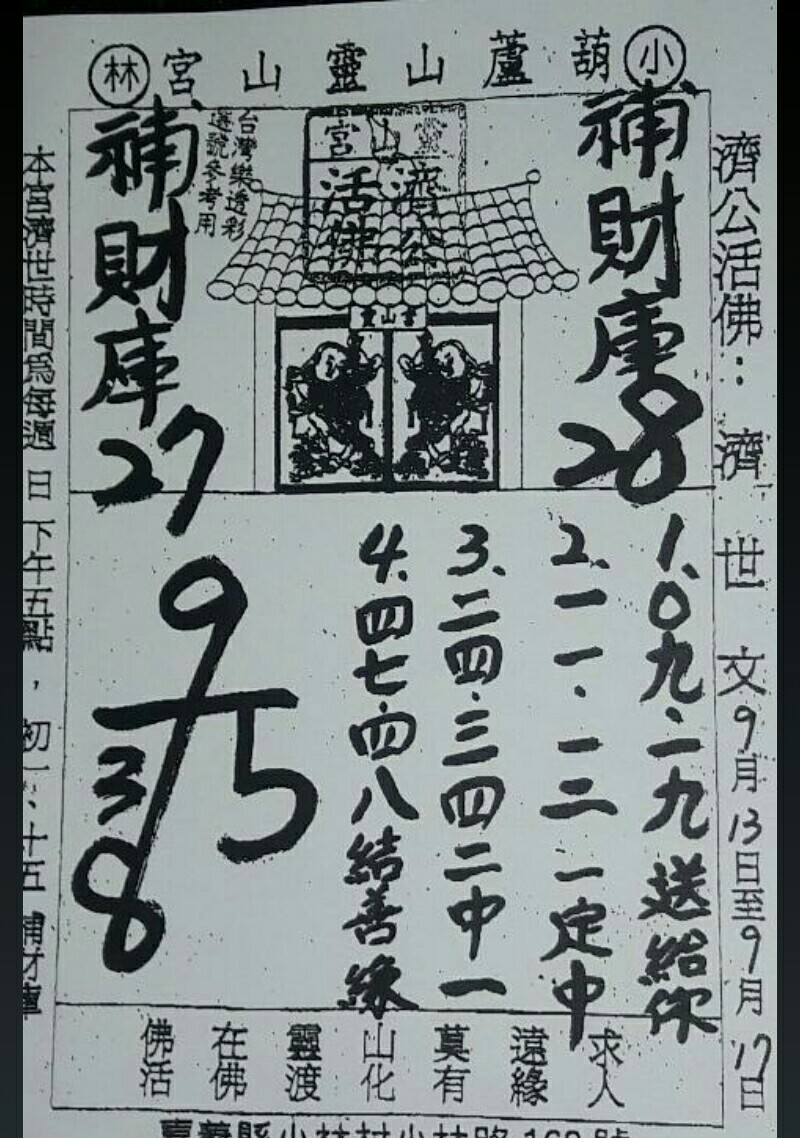 小葫蘆山靈山宮林
濟公活佛：濟世文9月13日至9月17日
補財庫28
台灣樂透彩
選號參考用
濟公
活佛
補財庫27
1.0九.二九送給你
2.一一.一二一定中
3.二四.三四二中一
4.四七.四八結善緣
9
5
3
8
求人
遠緣
莫有
山化
靈渡
在佛
佛活
本宮濟世時間為每週日下午五點，初一、十五補財庫
嘉義縣小林村小林路162號